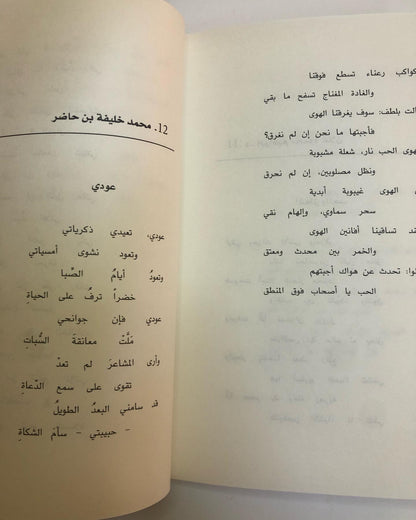 كواكب رعناء تسطع فوقنا
والغادة المغناج تسفح ما بقي
بلطف: سوف يغرقنا الهوى
فأجبتها ما نحن إن لم نغرق؟
الحب نار، شعلة مشبوبة
ونظل مصلوبين، إن لم نحرق
الهوى غيبوبة أبدية
سحر سماوي، وإلهام نقي
تساقينا أفانين الهوى
والخمر بين محدث ومعتق
تحدث عن هواك أجبتهم
الحب يا أصحاب فوق المنطق
12. محمد خليفة بن حاضر
عودي
عودي، تعيدي ذكرياتي
وتعود نشوى أمسياتي
وتعودُ أيامُ الصِّبا
خضراً ترفُ على الحياةِ
عودي فإن جوانحي
ملَّت معانقةَ السُّباتِ
وأرى المشاعرَ لم تعدْ
تقوى على سمع الدُّعاةِ
قد سامني البعدُ الطويلُ
- حبيبتي - سأمَ الشكاةِ